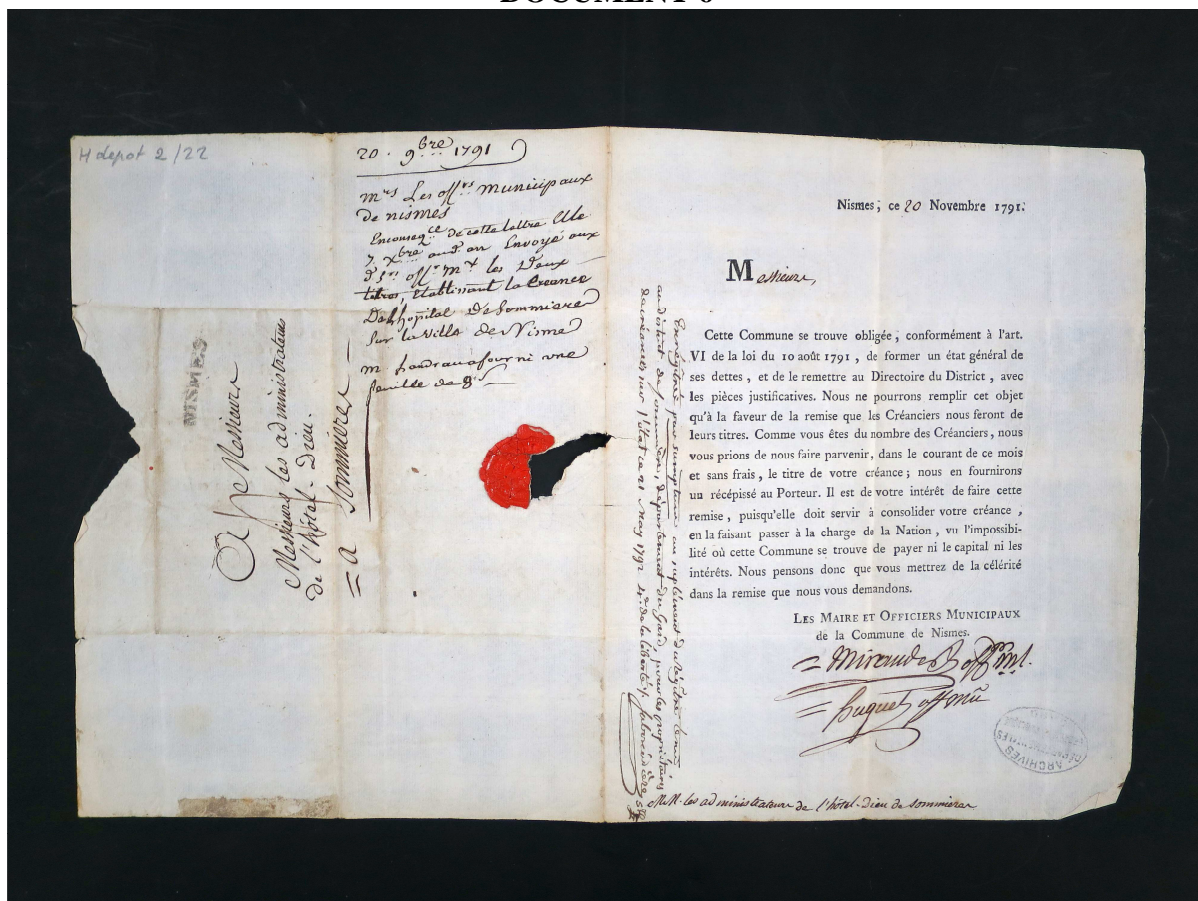 DOCUMENT 6
H depot 2/22
20. 9bre 1791
mrs Les offrs municipaux
de nismes
Enconseqce de cette lettre & le
7. xbre aud. an Envoyé aux
d. srs offrs mx les Deux
titres, Etablissant la Creance
De L'hopital De Sommieres
Sur la ville de Nismes
m. fourni une
feuille de
NISMES
A Messieurs
Messieurs les administrateurs
de l'hôtel-Dieu.
= a Sommieres =
Nismes, ce 20 Novembre 1791.
Messieurs,
Cette Commune se trouve obligée, conformément à l'art.
VI de la loi du 10 août 1791, de former un état général de
ses dettes, et de le remettre au Directoire du District, avec
les pièces justificatives. Nous ne pourrons remplir cet objet
qu'à la faveur de la remise que les Créanciers nous feront de
leurs titres. Comme vous êtes du nombre des Créanciers, nous
vous prions de nous faire parvenir, dans le courant de ce mois
et sans frais, le titre de votre créance; nous en fournirons
un récépissé au Porteur. Il est de votre intérêt de faire cette
remise, puisqu'elle doit servir à consolider votre créance,
en la faisant passer à la charge de la Nation, vu l'impossibi-
lité où cette Commune se trouve de payer ni le capital ni les
intérêts. Nous pensons donc que vous mettrez de la célérité
dans la remise que nous vous demandons.
LES MAIRE ET OFFICIERS MUNICIPAUX
de la Commune de Nismes.
= offr ml.
= huguet off mu
MM. les administrateurs de l'hôtel-dieu de Sommieres
Enregistré par surcription au suplément du Régistre tenu
au district de Sommieres, département du Gard, pour les propriétaires
de créances sur l'état ce 21 May 1792 4e de la liberté
ARCHIVES
DÉPARTEMENTALES